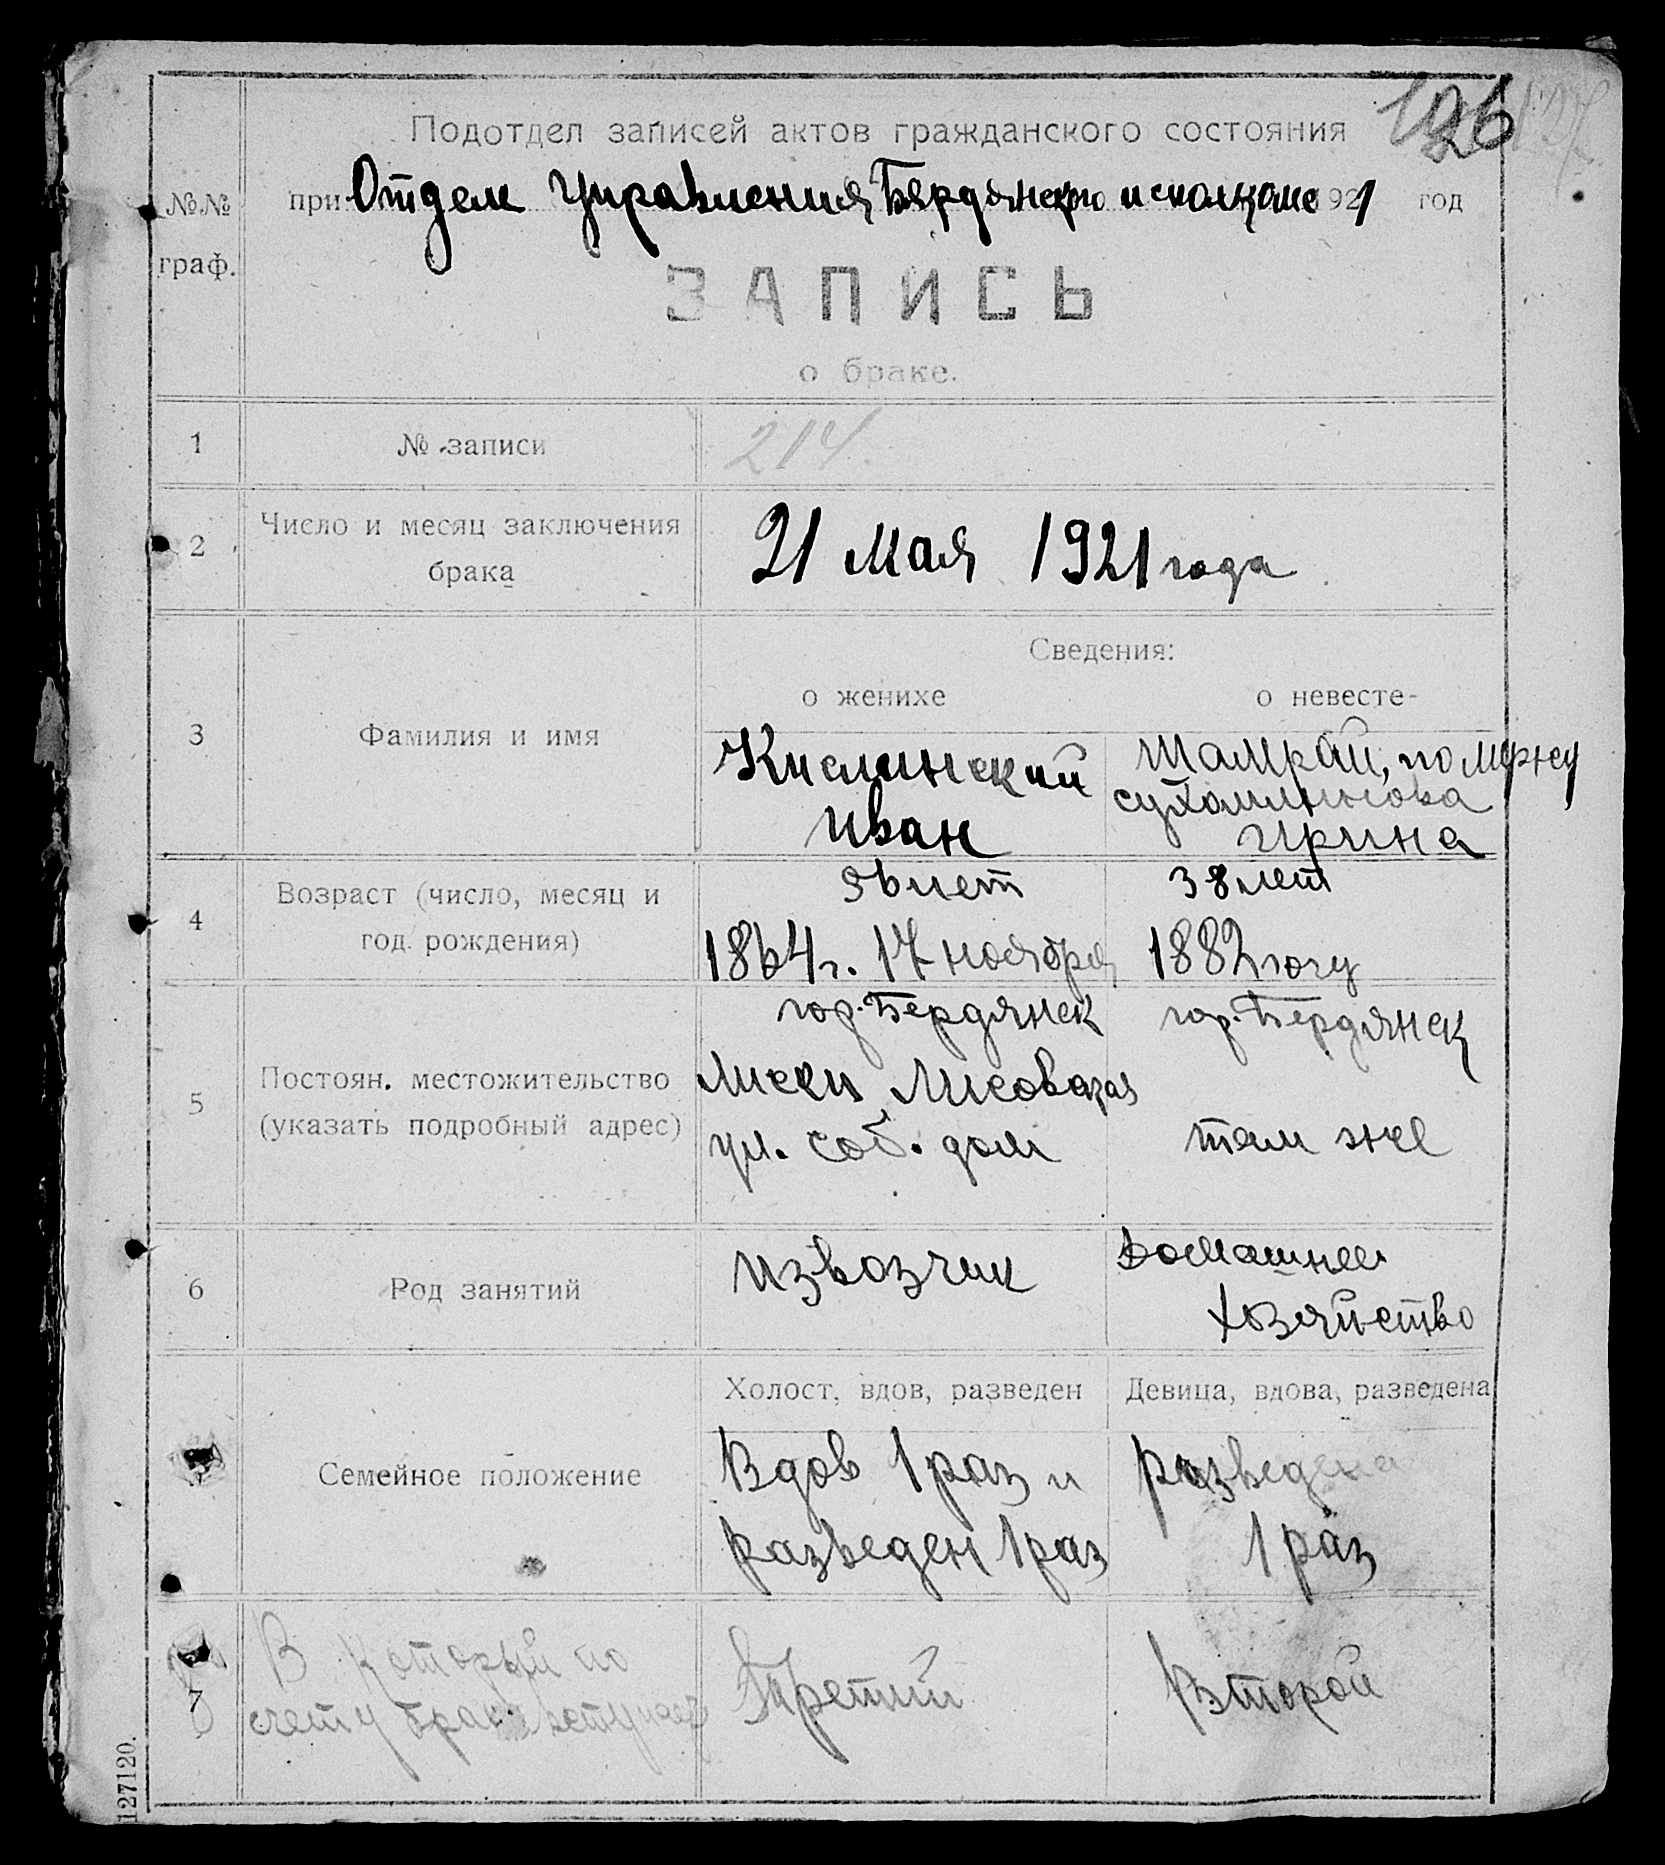 126
Подотдел записей актов гражданского состояния
№№ граф.
при Отделе Управления Бердянского исполкома 1921 год
ЗАПИСЬ
о браке.
1 № записи 214.
2 Число и месяц заключения брака
21 мая 1921 года
Сведения:
о женихе о невесте
3 Фамилия и имя
Кислинский
Иван
Шамрай, по мужу
Сухомлинова
Ирина
4 Возраст (число, месяц и
год рождения)
56 лет
1864 г. 17 ноября
38 лет
1882 году
5 Постоян. местожительство
(указать подробный адрес)
гор. Бердянск
Лиски
ул. соб. дом
гор. Бердянск
там же
6 Род занятий
извозчик
Домашнее
хозяйство
Холост, вдов, разведен Девица, вдова, разведена
Семейное положение
Вдов 1 раз и
разведен 1 раз
разведена
1 раз
7 В который по
счету брак вступает
Третий
Второй
127120.